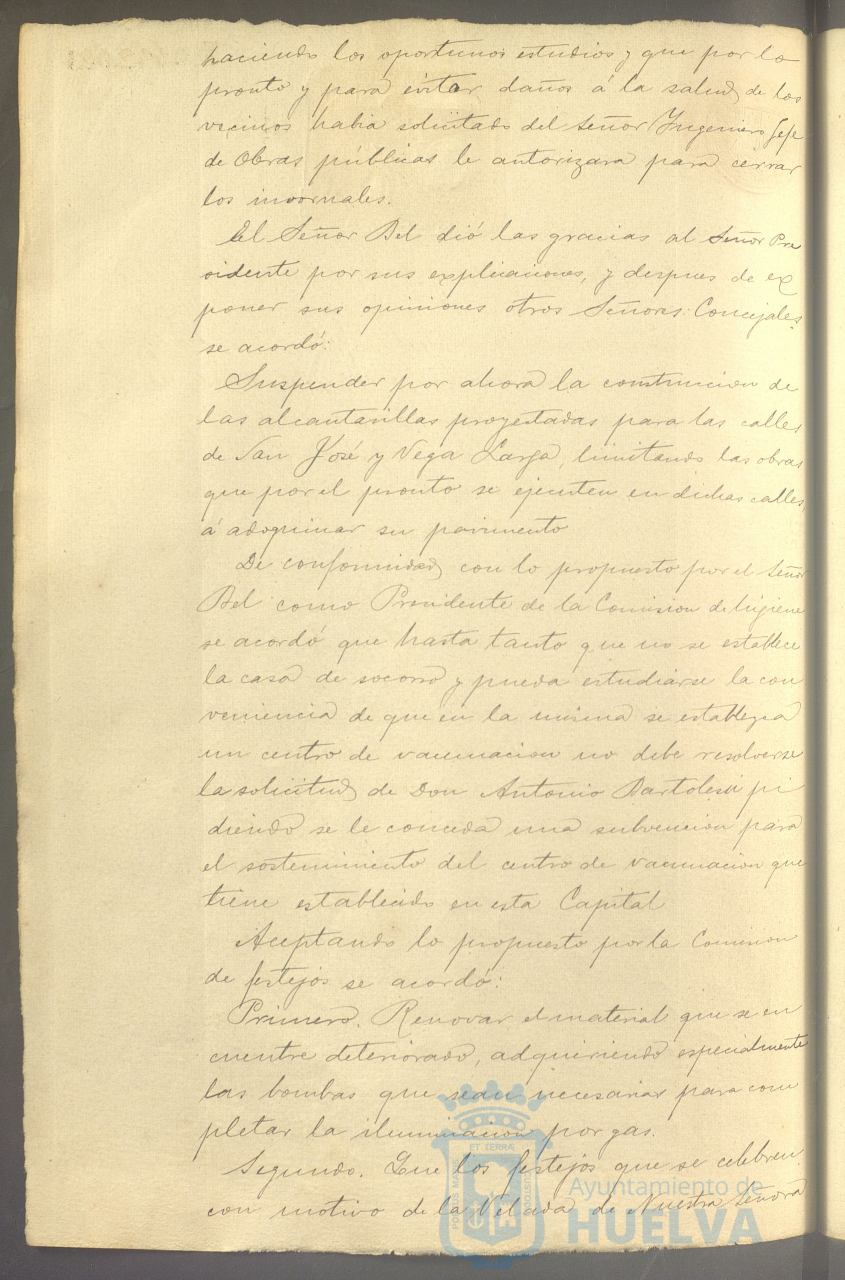 haciendo los oportunos estudios y que por lo
pronto y para evitar daños á la salud de los
vecinos habia solicitado del Señor Ingeniero Gefe
de Obras públicas le autorizara para cerrar
los invornales.
El Señor Bel dió las gracias al Señor Pre
sidente por sus explicaciones, y despues de ex
poner sus opiniones otros Señores Concejales
se acordó:
Suspender por ahora la construccion de
las alcantarillas proyectadas para las calles
de San José y Vega Larga, limitando las obras
que por el pronto se ejecuten en dichas calles,
á adoquinar su pavimento
De conformidad con lo propuesto por el Señor
Bel como Presidente de la Comision de higiene
se acordó que hasta tanto que no se establece
la casa de socorro y pueda estudiarse la con
veniencia de que en la misma se establezca
un centro de vacunacion no debe resolverse
la solicitud de Don Antonio Bartolesi pi
diendo se le conceda una subvencion para
el sostenimiento del centro de vacunacion que
tiene establecido en esta Capital
Aceptando lo propuesto por la Comision
de festejos se acordó:
Primero. Renovar el material que se en
cuentre deteriorado, adquiriendo especialmente
las bombas que sean necesarias para com
pletar la iluminacion por gas.
Segundo. Que los festejos que se celebren
con motivo de la Velada de Nuestra Señora
PORTUS MARIS ET TERRAE CUSTODIA
Ayuntamiento de
HUELVA